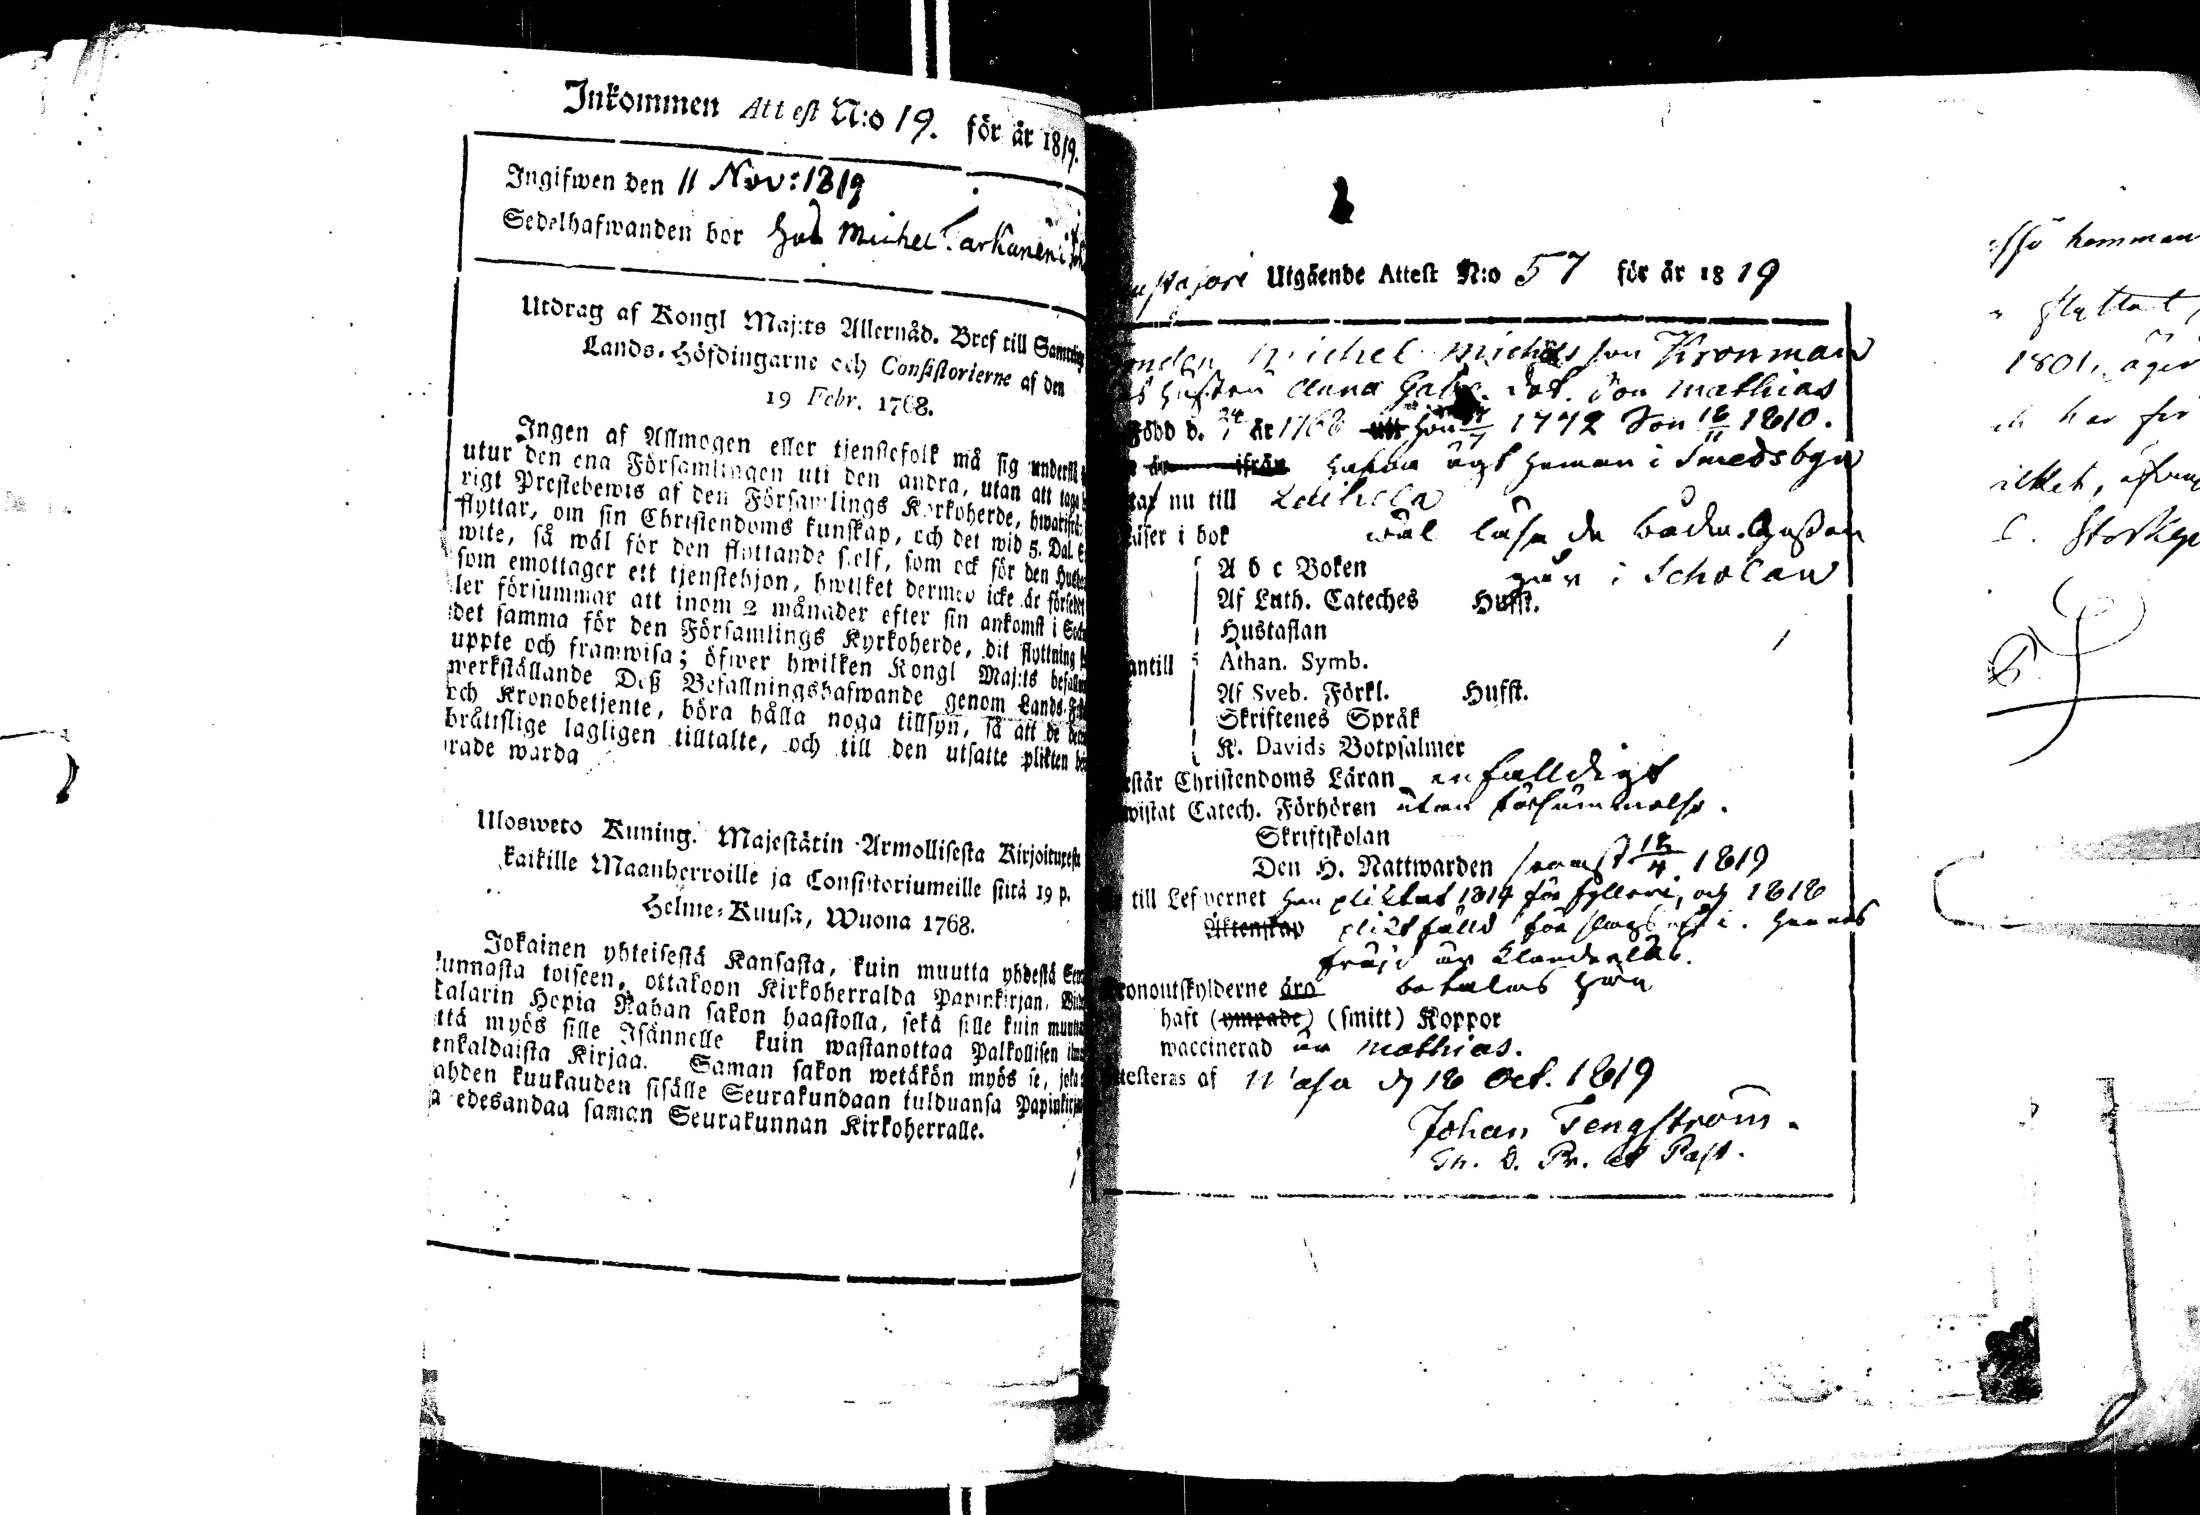 Inkommen Attest N:o 19. för år 1819.
Ingifwen den 11 Nov: 1819
Sedelhafwanden bor hos Michel Tarkanen i
Utdrag af Kongl Maj:ts Allernåd. Bref till Samtelige
Lands-Höfdingarne och Consistorierne af den
19 Febr. 1768.
Ingen af Allmogen eller tjenstefolk må sig understå
utur den ena Församlingen uti den andra, utan att taga
rigt Prestebewis af den Församlings Kyrkoherde, hwarifrå
flyttar, om sin Christendoms kunskap, och det wid 5. Dal.
wite, så wäl för den flyttande sjelf, som ock för den Husb
som emottager ett tjenstehjon, hwilket dermed icke är försedt
ler försummar att inom 2 månader efter sin ankomst i Sock
det samma för den Församlings Kyrkoherde, dit flyttning
uppte och framwisa; öfwer hwilken Kongl Maj:ts befalln
werkställande Deß Befallningshafwande genom Lands-Fi
och Kronobetjente, böra hålla noga tillsyn, så att de der
bråttslige lagligen tilltalte, och till den utsatte plikten
rade warda
Uloswето Kuning. Majestätin Armollisesta Kirjoituxesta
kaikille Maanherroille ja Consistoriumeille siitä 19 p.
Helme-Kuusa, Wuona 1768.
Jokainen yhteisestä Kansasta, kuin muutta yhdestä Seu
unnasta toiseen, ottakoon Kirkoherralda Papinkirjan,
talarin Hopia Rahan sakon haastolla, sekä sille kuin muutta
ttä myös sille Isännelle kuin wastanottaa Palkollisen ilm
enkaldaista Kirjaa. Saman sakon wetäkön myös se, joka
ahden kuukauden sisälle Seurakundaan tulduansa Papinkirja
a edesandaa saman Seurakunnan Kirkoherralle.
Utgående Attest N:o 57 för år 1819
Michel Michelsson Kronman
Hustru Anna Gab. dot. Son Mathias
Född d. 24/1 år 1768 hon 1772 Son 18/11 1810.
är ifrån hafva ägt heman i Smedsbyn
nu till Laihela
äser i bok wäl läsa de båda. Gossen
går i Scholan
A b c Boken
Af Luth. Cateches Hufst.
Hustaflan
antill Athan. Symb.
Af Sveb. Förkl. Hufst.
Skriftenes Språk
K. Davids Botpsalmer
står Christendoms Läran enfalldigt
wistat Catech. Förhören utan försummelse.
Skriftskolan
Den H. Nattwarden senast 18/4 1819
till Lefwernet han pliktat 1814 för fylleri, och 1818
Äktenskap pliktfälld för slagsmål. Hennes
fräjd är klanderlös.
ronoutskylderne äro betalas här
haft (ympade) (smitt) Koppor
waccinerad är Mathias.
testeras af Wasa d 18 Oct. 1819
Johan Tengström.
Th. D. Pr. et Past.
hemman
flyttat
1801, äger
har för